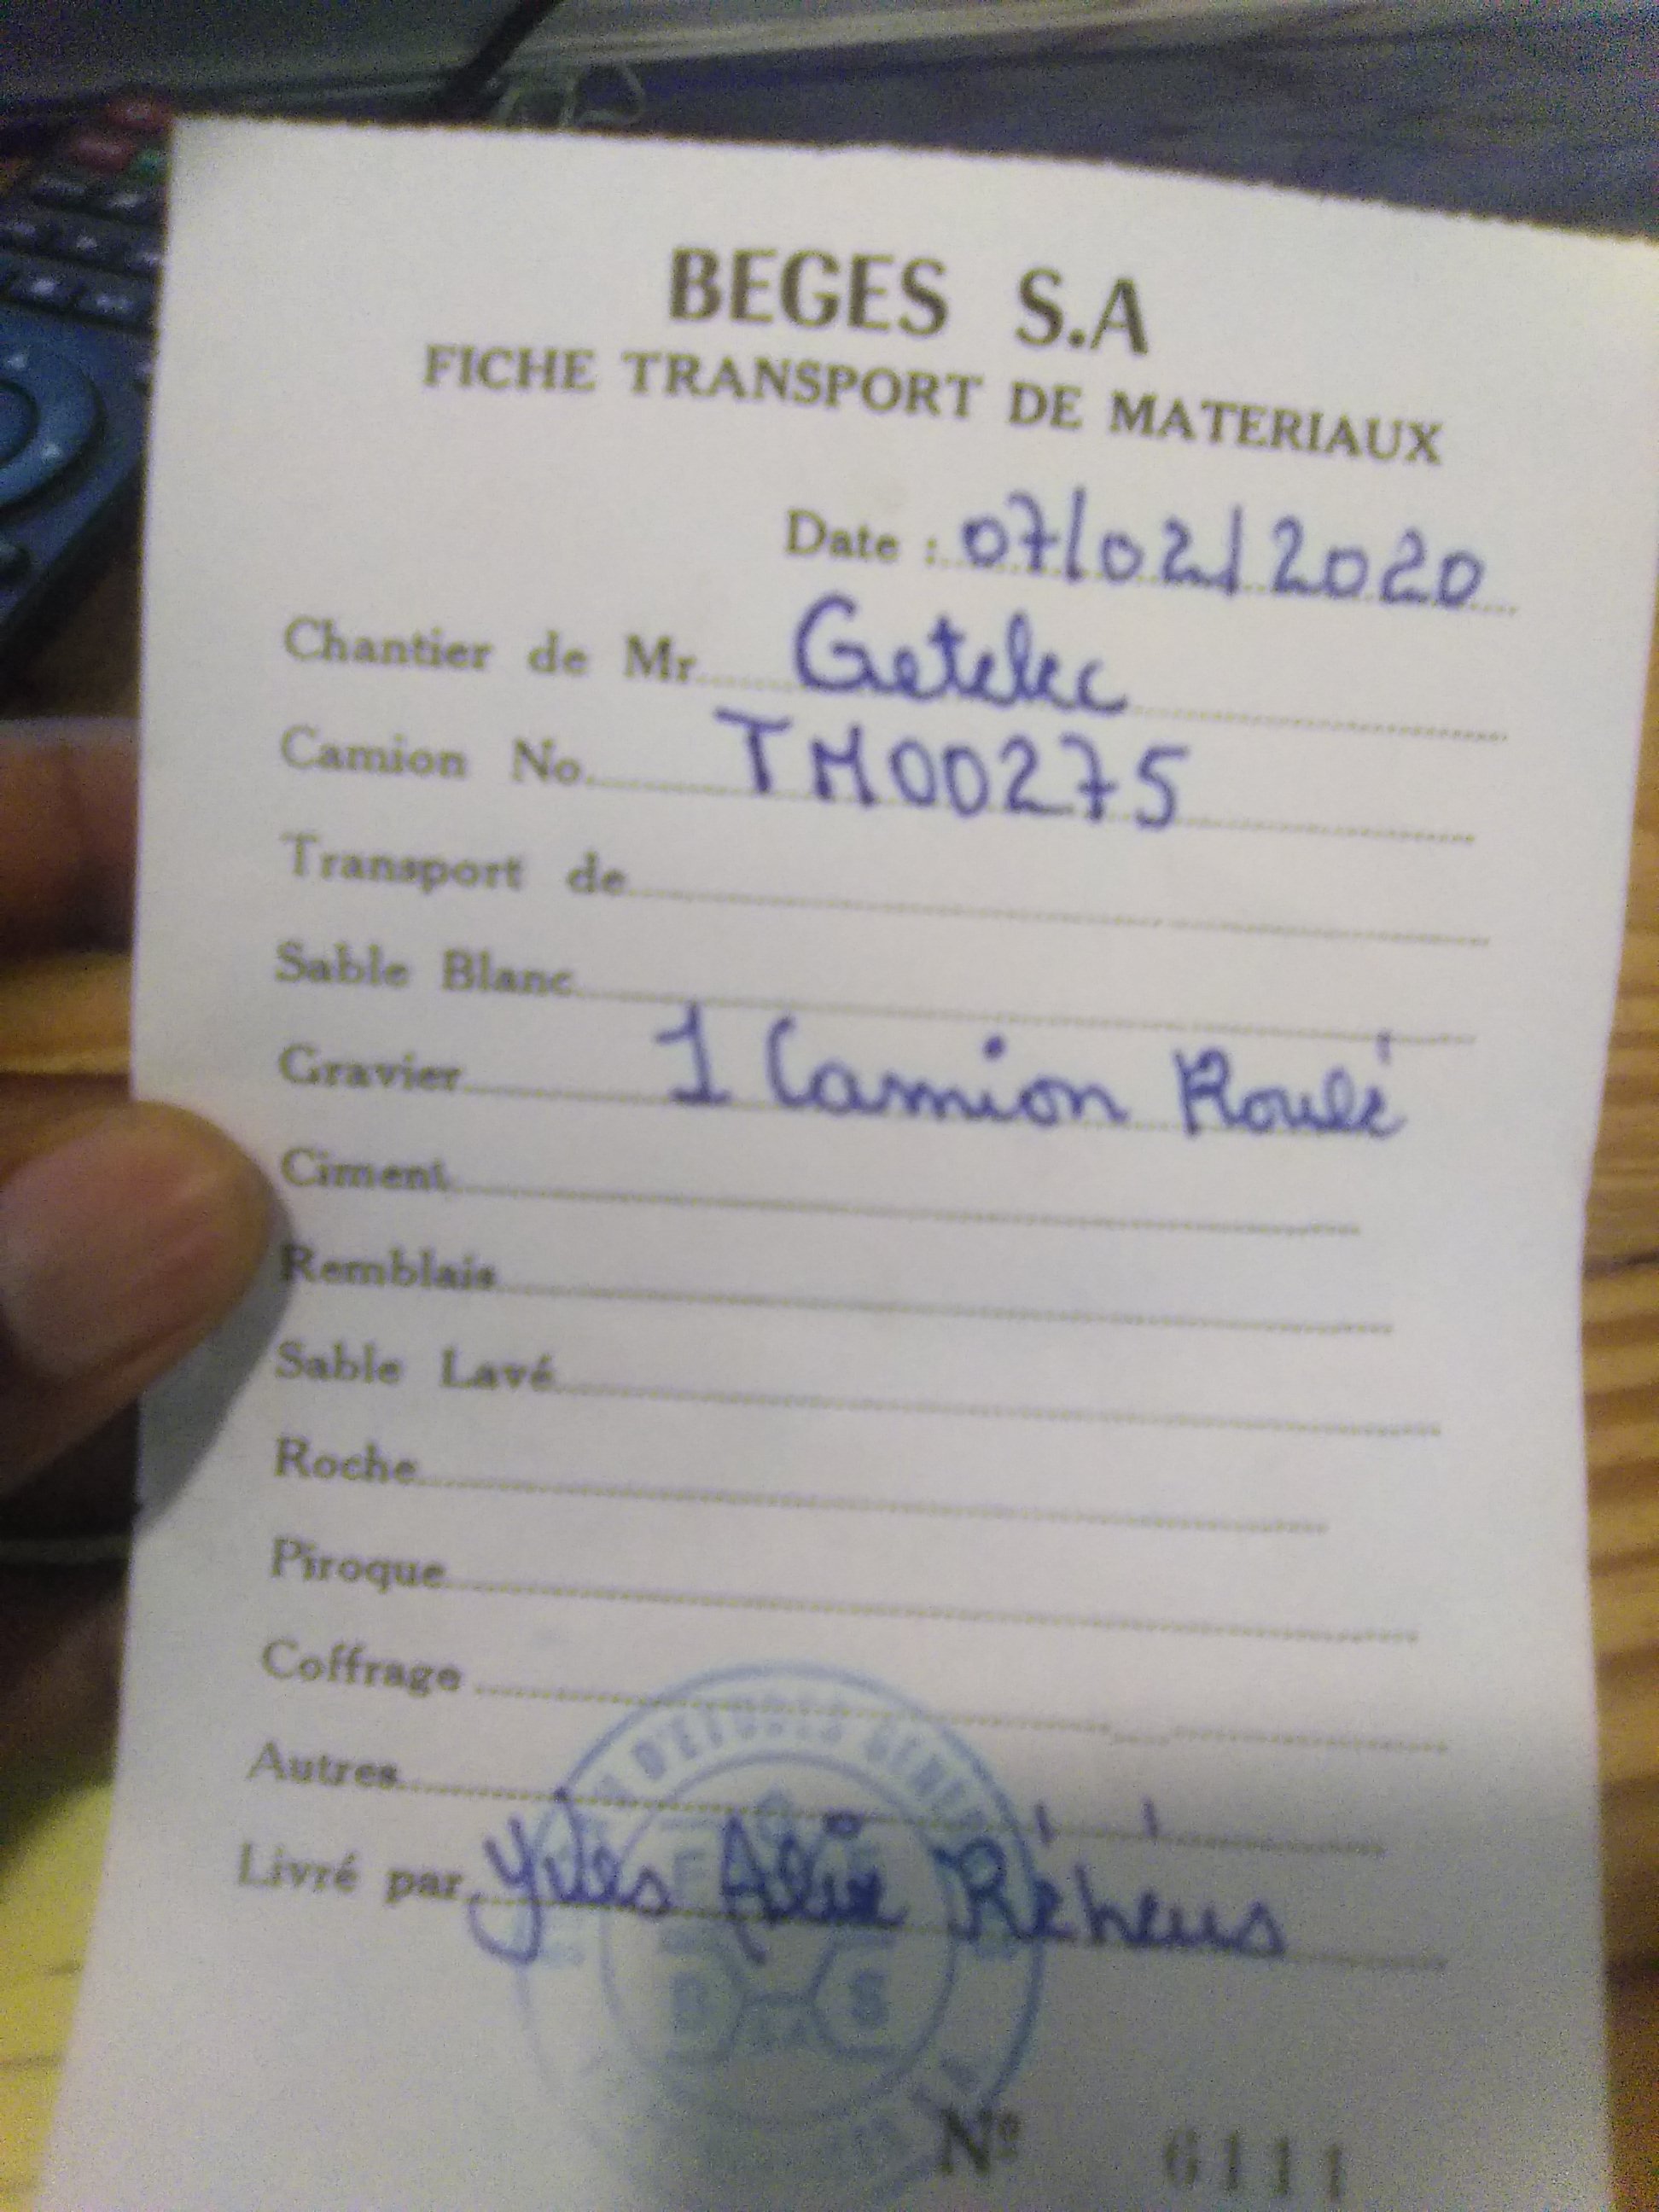 BEGES S.A
FICHE TRANSPORT DE MATERIAUX
Date : 07/02/2020
Chantier de Mr Getelec
Camion No. TM00275
Transport de
Sable Blanc
Gravier 1 Camion Roulé
Ciment
Remblais
Sable Lavé
Roche
Piroque
Coffrage
Autres
D'ETUDES
Livré par Yves Alix
Nº 6111